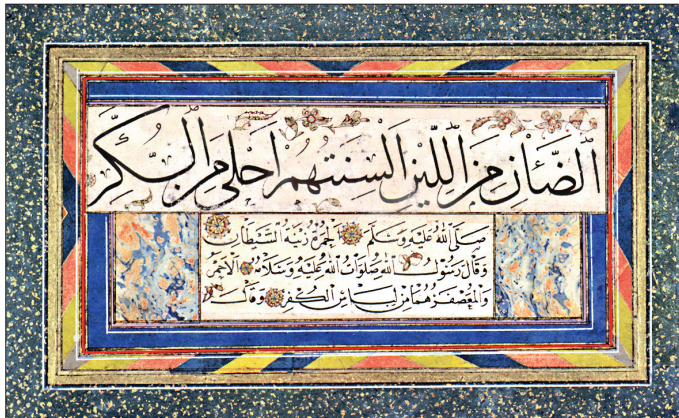 الضَّأنِ مِنَ اللِّينِ اَلسِنَتُهُم اَحلى مِنَ السُّكَّرِ
صَلَّى اللهُ عَلَيْهِ وَسَلَّمَ اَلحُمرَةُ زِينَةُ الشَّيطَانِ
وَقَالَ رَسُولُ اللهِ صَلَوَاتُ اللهِ عَلَيْهِ وَسَلَامُهُ الاَحمَرُ
وَالمُعَصْفَرُ هُمَا مِن لِبَاسِ الكُفرِ وَقَالَ